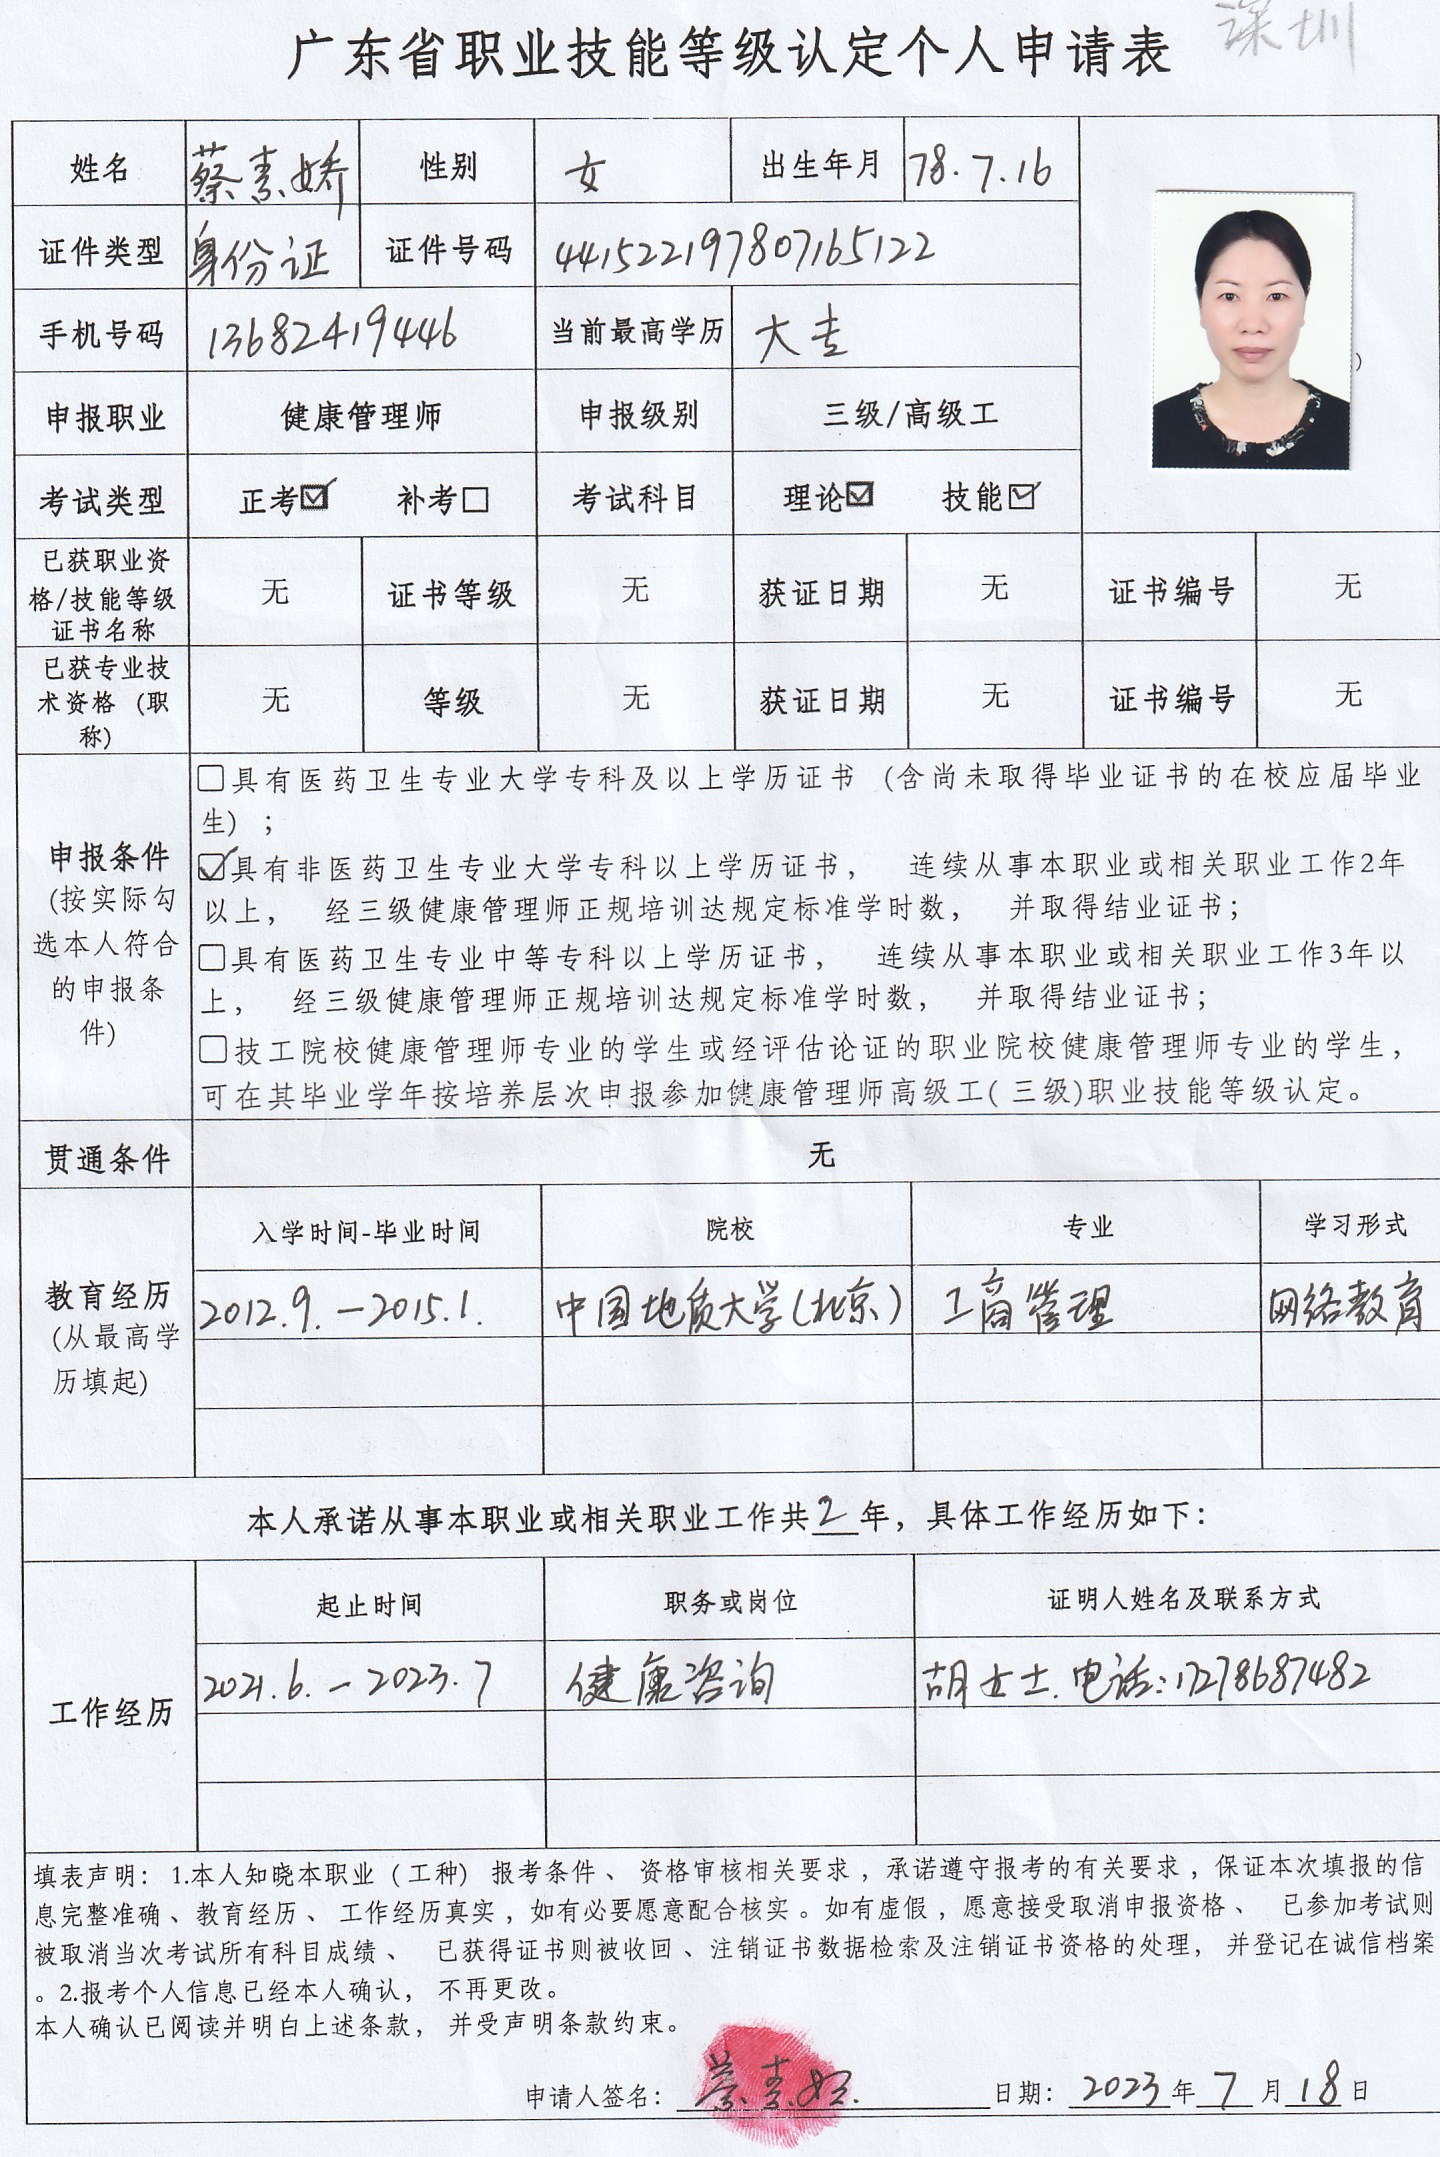 深圳
广东省职业技能等级认定个人申请表
姓名 蔡素娇 性别 女 出生年月 78.7.16
证件类型 身份证 证件号码 441522197807165122
手机号码 13682419446 当前最高学历 大专
)
申报职业 健康管理师 申报级别 三级/高级工
考试类型 正考☑ 补考☐ 考试科目 理论☑ 技能☑
已获职业资
格/技能等级 无 证书等级 无 获证日期 无 证书编号 无
证书名称
已获专业技
术资格（职 无 等级 无 获证日期 无 证书编号 无
称）
☐具有医药卫生专业大学专科及以上学历证书（含尚未取得毕业证书的在校应届毕业
生）；
申报条件
☑具有非医药卫生专业大学专科以上学历证书， 连续从事本职业或相关职业工作2年
(按实际勾
以上， 经三级健康管理师正规培训达规定标准学时数， 并取得结业证书；
选本人符合
☐具有医药卫生专业中等专科以上学历证书， 连续从事本职业或相关职业工作3年以
的申报条
上， 经三级健康管理师正规培训达规定标准学时数， 并取得结业证书；
件)
☐技工院校健康管理师专业的学生或经评估论证的职业院校健康管理师专业的学生，
可在其毕业学年按培养层次申报参加健康管理师高级工(三级)职业技能等级认定。
贯通条件 无
入学时间-毕业时间 院校 专业 学习形式
教育经历
(从最高学
历填起)
2012.9.-2015.1. 中国地质大学(北京) 工商管理 网络教育
本人承诺从事本职业或相关职业工作共2年，具体工作经历如下：
起止时间 职务或岗位 证明人姓名及联系方式
工作经历
2021.6.-2023.7 健康咨询 胡女士.电话:17278687482
填表声明：1.本人知晓本职业（工种）报考条件、资格审核相关要求，承诺遵守报考的有关要求，保证本次填报的信
息完整准确、教育经历、工作经历真实，如有必要愿意配合核实。如有虚假，愿意接受取消申报资格、 已参加考试则
被取消当次考试所有科目成绩、 已获得证书则被收回、注销证书数据检索及注销证书资格的处理，并登记在诚信档案
。2.报考个人信息已经本人确认，不再更改。
本人确认已阅读并明白上述条款，并受声明条款约束。
申请人签名：蔡素娇 日期：2023年7月18日